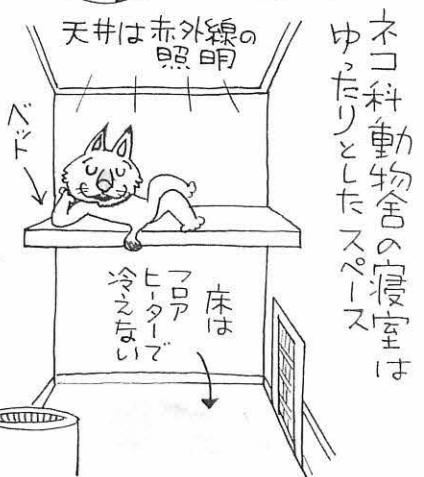 ネコ科動物舎の寝室は
ゆったりとしたスペース
天井は赤外線の
照明
ベット
床は
フロア
ヒーターで
冷えない